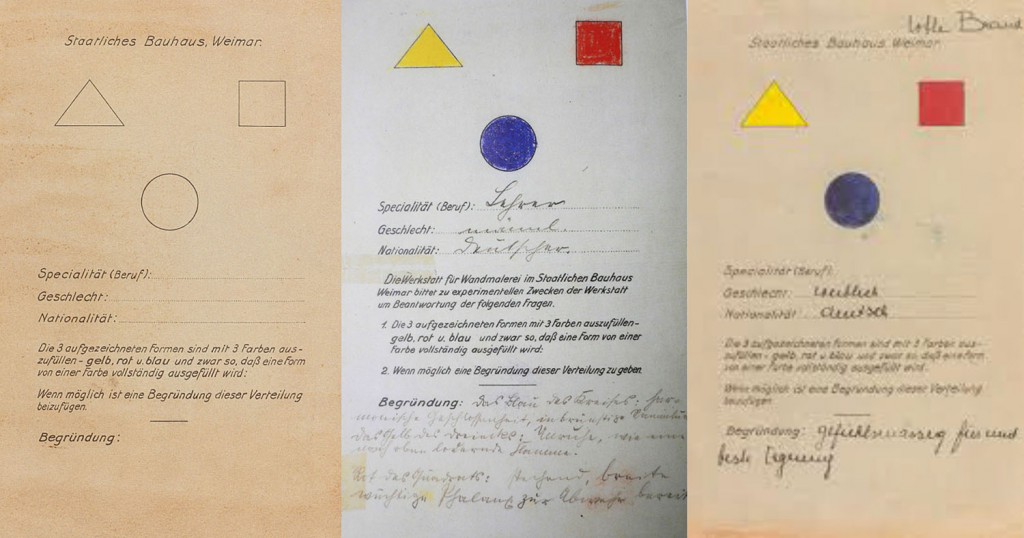 Staatliches Bauhaus, Weimar.
Specialität (Beruf):
Geschlecht:
Nationalität:
Die 3 aufgezeichneten Formen sind mit 3 Farben aus-
zufüllen - gelb, rot u. blau und zwar so, daß eine Form
von einer Farbe vollständig ausgefüllt wird:
Wenn möglich ist eine Begründung dieser Verteilung
beizufügen.
Begründung:
Specialität (Beruf): Lehrer
Geschlecht: männl.
Nationalität: Deutscher.
Die Werkstatt für Wandmalerei im Staatlichen Bauhaus
Weimar bittet zu experimentellen Zwecken der Werkstatt
um Beantwortung der folgenden Fragen.
1. Die 3 aufgezeichneten Formen mit 3 Farben auszufüllen-
gelb, rot u. blau und zwar so, daß eine Form von einer
Farbe vollständig ausgefüllt wird:
2. Wenn möglich eine Begründung dieser Verteilung zu geben.
Begründung: Das Blau des Kreises: har-
monische Geschlossenheit, inbrünstige
Das Gelb des Dreiecks: Unruhe, wie eine
nach oben lodernde Flamme.
Rot des Quadrats: stehend, breite
wuchtige Phalanx zur Abwehr bereit
Lotte Brand
Staatliches Bauhaus, Weimar.
Specialität (Beruf):
Geschlecht: weiblich
Nationalität: deutsch
Die 3 aufgezeichneten Formen sind mit 3 Farben aus-
zufüllen - gelb, rot u. blau und zwar so, daß eine Form
von einer Farbe vollständig ausgefüllt wird:
Wenn möglich ist eine Begründung dieser Verteilung
beizufügen.
Begründung: gefühlsmässig und
beste Eignung